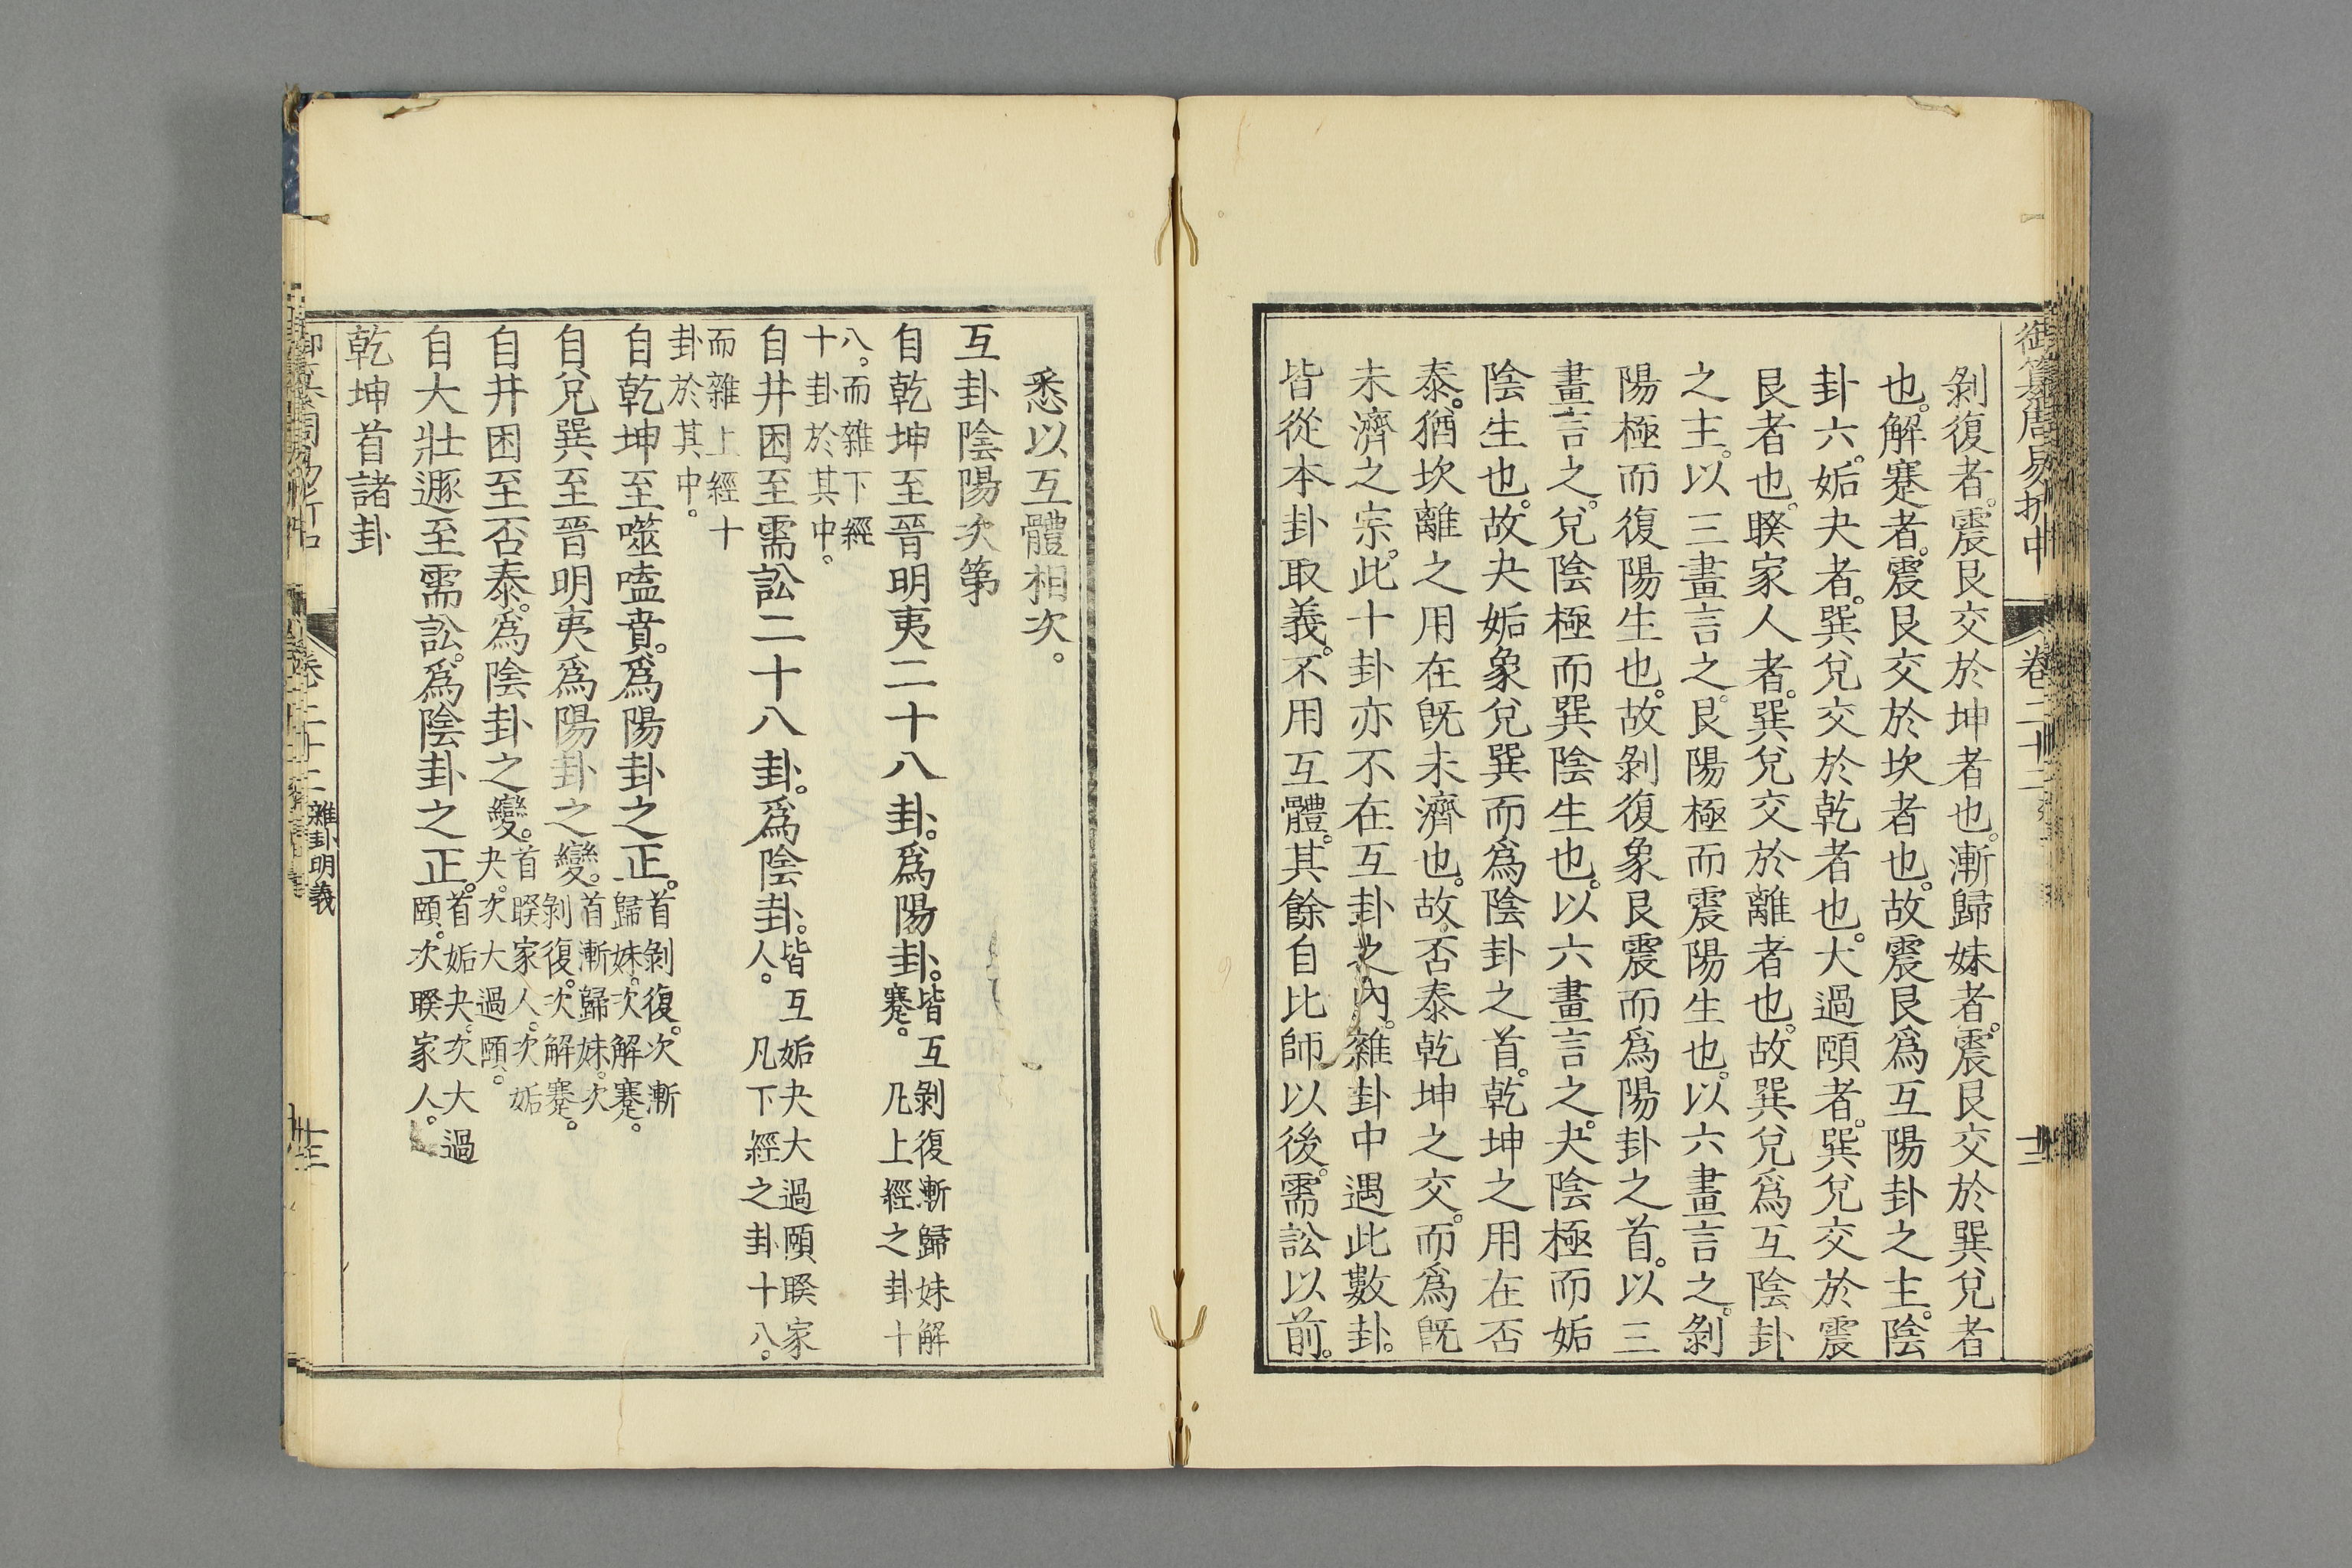 御纂周易折中
卷二十二
剝復者。震艮交於坤者也。漸歸妹者。震艮交於巽兌者
也。解蹇者。震艮交於坎者也。故震艮爲互陽卦之主。陰
卦六。姤夬者。巽兌交於乾者也。大過頤者。巽兌交於震
艮者也。睽家人者。巽兌交於離者也。故巽兌爲互陰卦
之主。以三畫言之。艮陽極而震陽生也。以六畫言之。剝
陽極而復陽生也。故剝復象艮震而爲陽卦之首。以三
畫言之。兌陰極而巽陰生也。以六畫言之。夬陰極而姤
陰生也。故夬姤象兌巽而爲陰卦之首。乾坤之用在否
泰。猶坎離之用在旣未濟也。故否泰乾坤之交。而爲旣
未濟之宗。此十卦亦不在互卦之內。雜卦中遇此數卦。
皆從本卦取義。不用互體。其餘自比師以後。需訟以前。
悉以互體相次。
互卦陰陽次第
自乾坤至晉明夷二十八卦。爲陽卦。皆互剝復漸歸妹解
蹇。凡上經之卦十
八。而雜下經
十卦於其中。
自井困至需訟二十八卦。爲陰卦。皆互姤夬大過頤睽家
人。凡下經之卦十八。
而雜上經十
卦於其中。
自乾坤至噬嗑賁。爲陽卦之正。首剝復。次漸
歸妹。次解蹇。
自兌巽至晉明夷爲陽卦之變。首漸歸妹。次
剝復。次解蹇。
自井困至否泰。爲陰卦之變。首睽家人。次姤
夬。次大過頤。
自大壯遯至需訟。爲陰卦之正。首姤夬。次大過
頤。次睽家人。
乾坤首諸卦
雜卦明義
十三